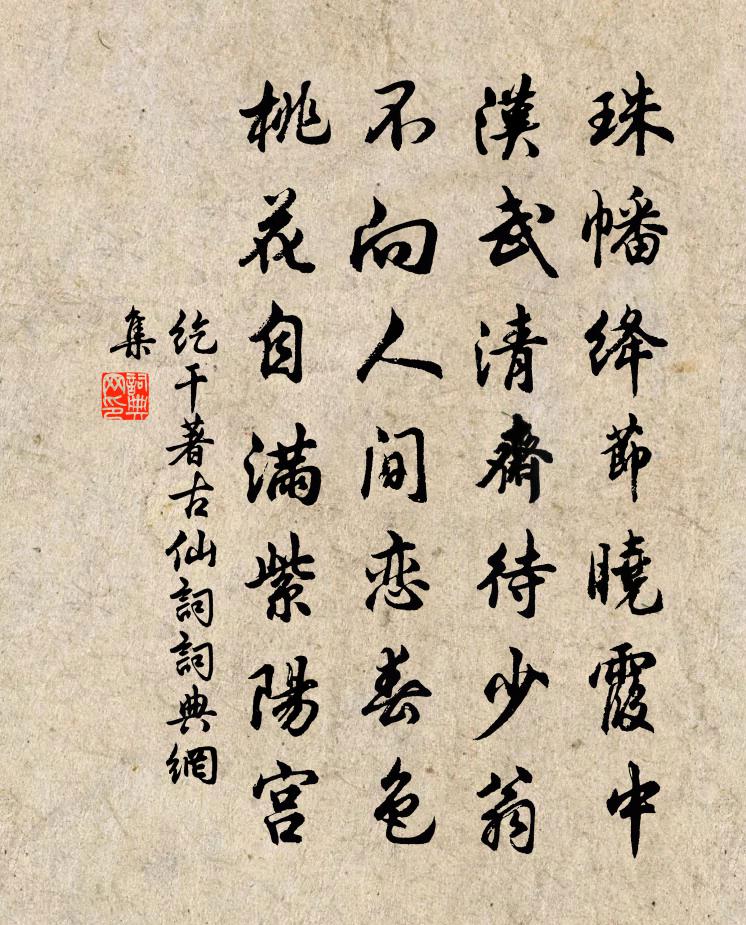 珠幡绛節曉霞中
漢武清齋待少翁
不向人间恋春色
桃花自滿紫陽宫
纥干著古仙詞詞典網
集
詞典网印